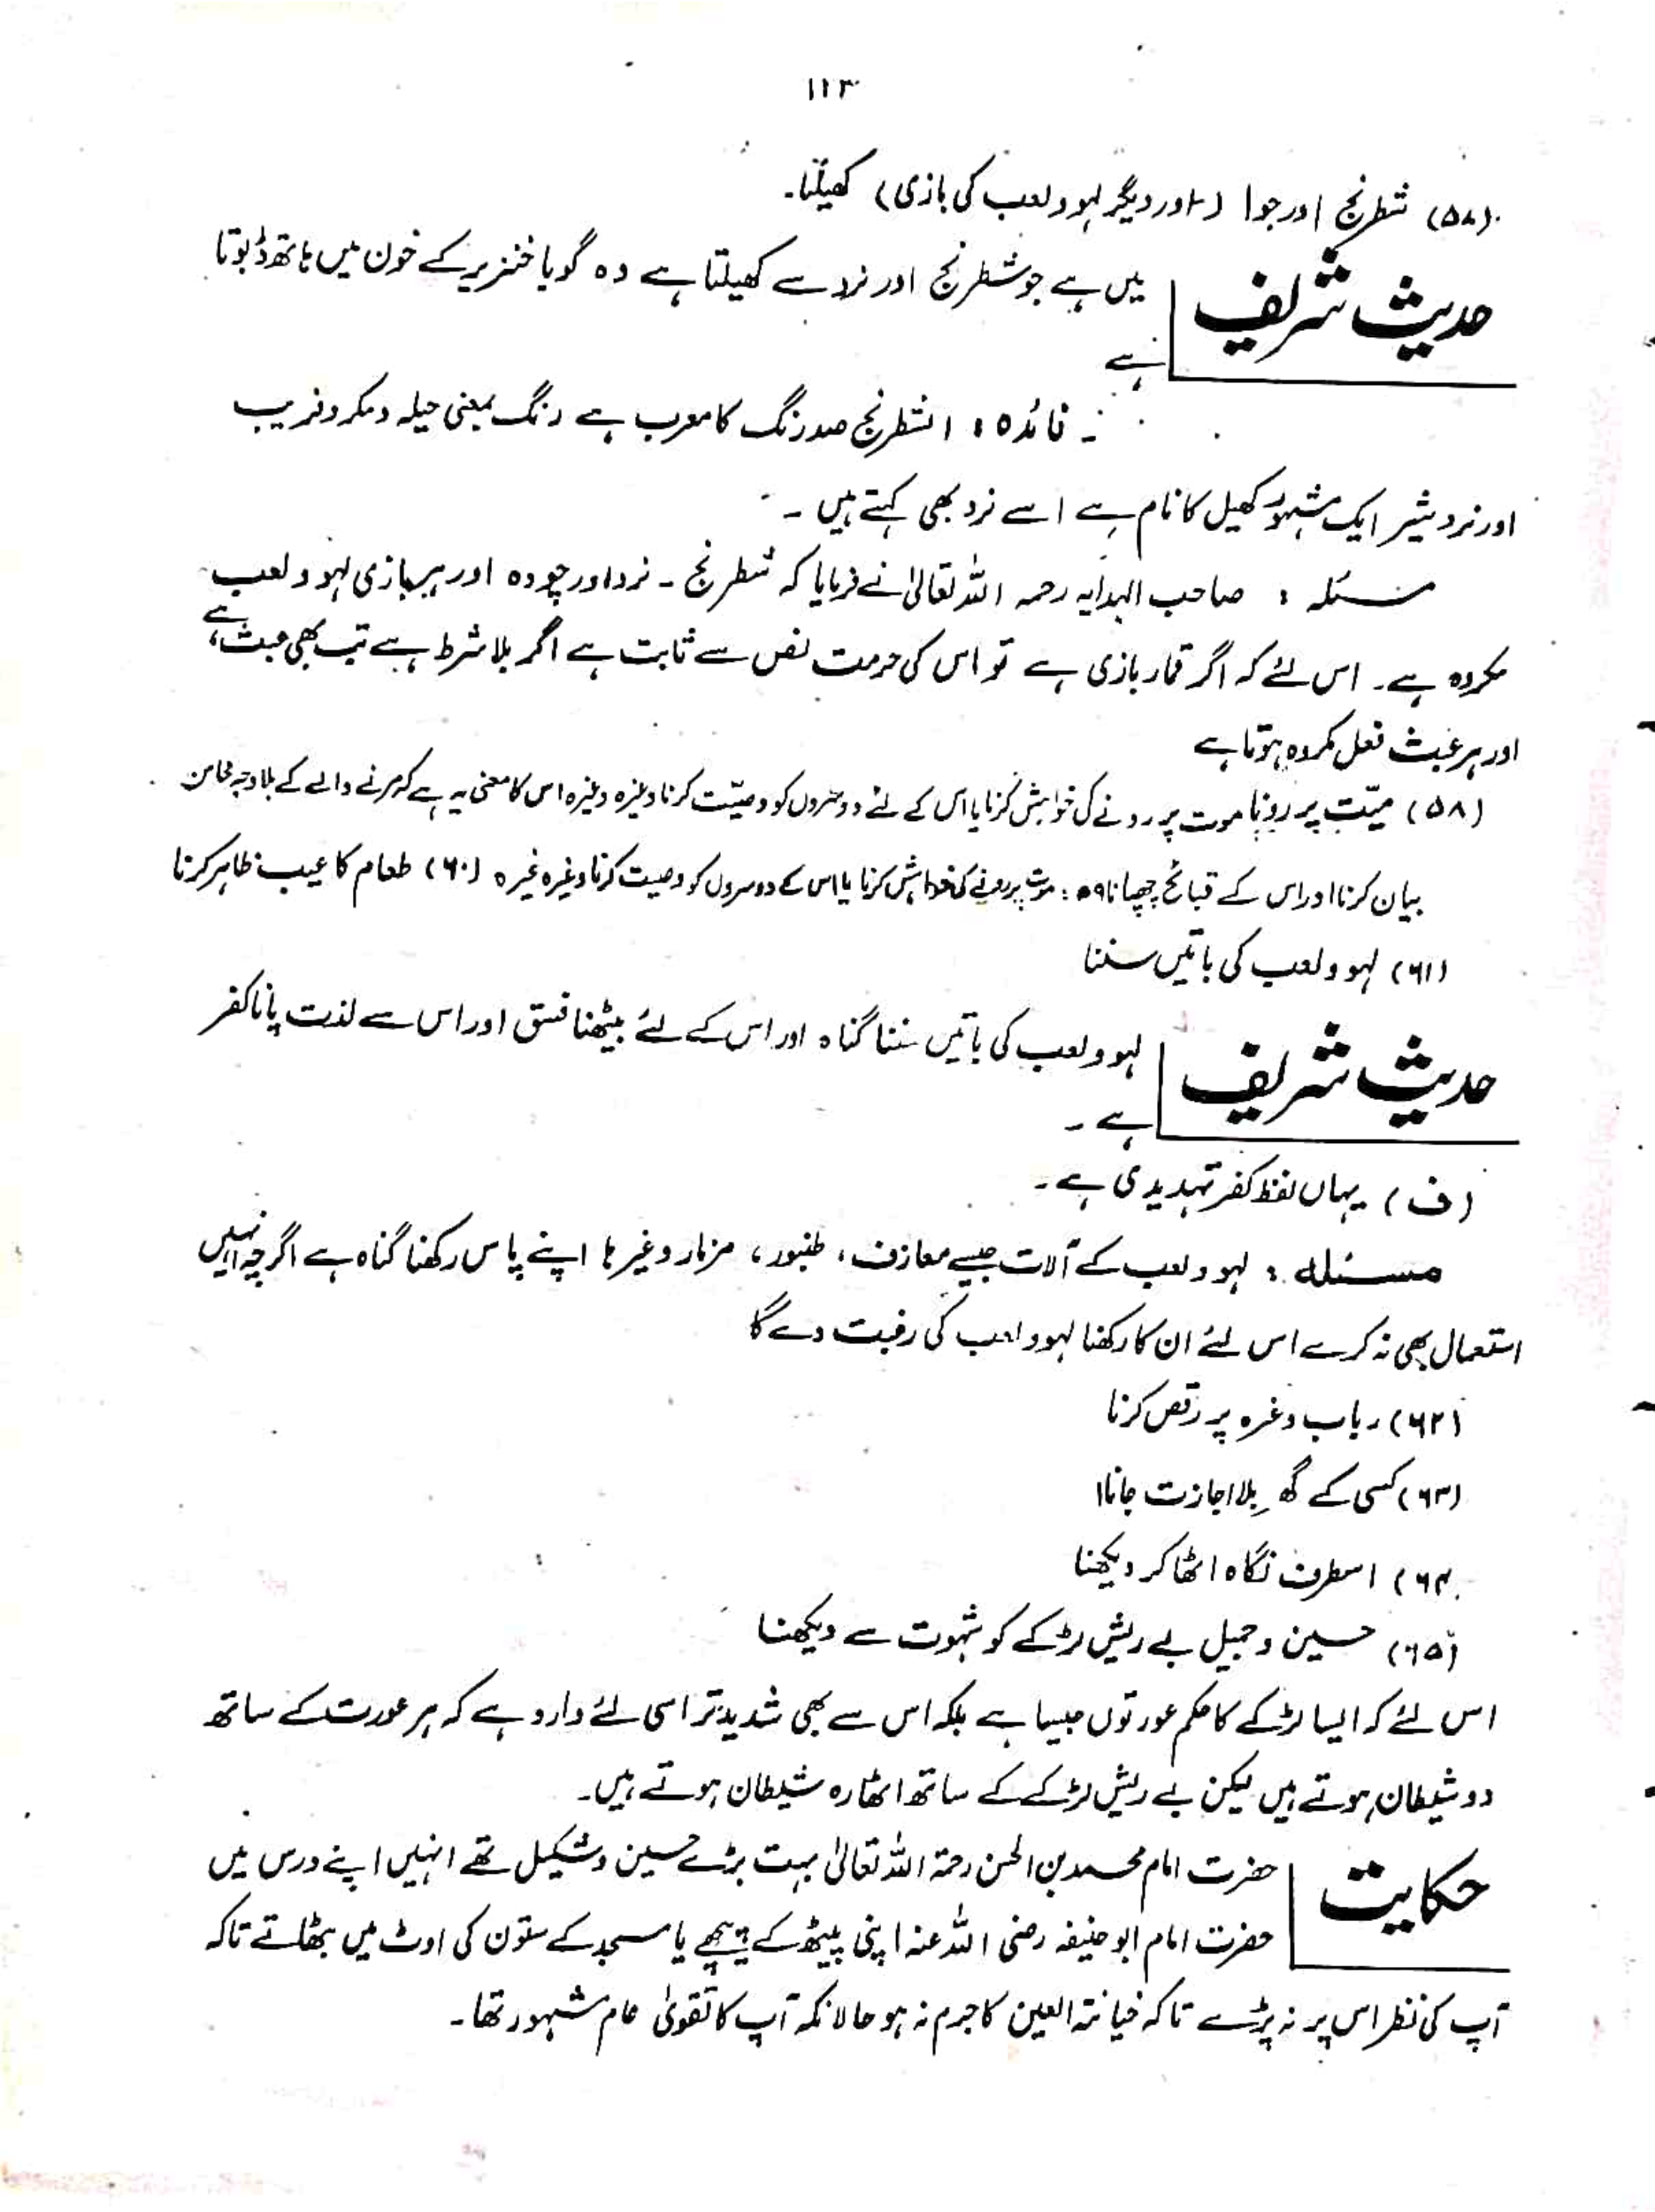 ۱۱۳
(۵۸) شطرنج اور جوا (اور دیگر لہو و لعب کی بازی) کھیلنا۔
حدیث شریف
میں ہے جو شطرنج اور نرد سے کھیلتا ہے وہ گویا خنزیر کے خون میں ہاتھ ڈبوتا
ہے
فائدہ : الشطرنج صدرنگ کا معرب ہے رنگ بمعنی حیلہ و مکر و فریب
اور نرد شیر ایک مشہور کھیل کا نام ہے اسے نرد بھی کہتے ہیں ۔
مسئلہ : صاحب الہدایہ رحمہ اللہ تعالیٰ نے فرمایا کہ شطرنج ۔ نرد اور چودہ اور ہر بازی لہو و لعب
مکروہ ہے ۔ اس لئے کہ اگر قمار بازی ہے تو اس کی حرمت نص سے ثابت ہے اگر بلا شرط ہے تب بھی عبث ہے،
اور ہر عبث فعل مکروہ ہوتا ہے
(۵۸) میّت پر رونا موت پر رونے کی خواہش کرنا یا اس کے لئے دوسروں کو وصیّت کرنا وغیرہ وغیرہ اس کا معنی یہ ہے کہ مرنے والے کے بلا وجہ محاسن
بیان کرنا اور اس کے قبائح چھپانا ۵۹ : موت پر رونے کی خواہش کرنا یا اس کے دوسروں کو وصیت کرنا وغیرہ غیرہ (۶۰) طعام کا عیب ظاہر کرنا
(۶۱) لہو و لعب کی باتیں سننا
حدیث شریف
لہو و لعب کی باتیں سننا گناہ اور اس کے لئے بیٹھنا فسق اور اس سے لذت پانا کفر
ہے ۔
(ف) یہاں لفظ کفر تہدیدی ہے ۔
مسئلہ : لہو و لعب کے آلات جیسے معازف ، طنبور ، مزمار وغیرہا اپنے پاس رکھنا گناہ ہے اگرچہ انہیں
استعمال بھی نہ کرے اس لئے ان کا رکھنا لہو و لعب کی رغبت دے گا
(۶۲) رباب وغرہ پر رقص کرنا
(۶۳) کسی کے گھر بلا اجازت جانا
۶۴) اسطرف نگاہ اٹھا کر دیکھنا
(۶۵) حسین و جمیل بے ریش لڑکے کو شہوت سے دیکھنا
اس لئے کہ ایسا لڑکے کا حکم عورتوں جیسا ہے بلکہ اس سے بھی شدید تر اسی لئے وارد ہے کہ ہر عورت کے ساتھ
دو شیطان ہوتے ہیں لیکن بے ریش لڑکے کے ساتھ اٹھارہ شیطان ہوتے ہیں۔
حکایت
حضرت امام محمد بن الحسن رحمۃ اللہ تعالیٰ بہت بڑے حسین و شکیل تھے انہیں اپنے درس میں
حضرت امام ابو حنیفہ رضی اللہ عنہ اپنی پیٹھ کے پیچھے یا مسجد کے ستون کی اوٹ میں بٹھاتے تاکہ
آپ کی نظر اس پر نہ پڑے تاکہ خیانۃ العین کا جرم نہ ہو حالانکہ آپ کا تقویٰ عام مشہور تھا ۔